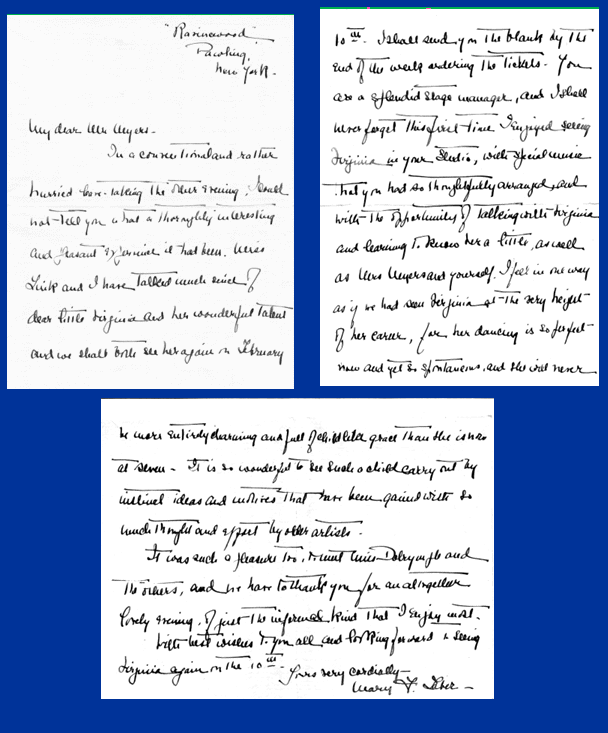 "Ravinewood"
Pawling,
New York.
My dear Mr Myers -
In a conventional and rather
hurried leave-taking the other evening, I could
not tell you what a thoroughly interesting
and pleasant experience it had been. Miss
Link and I have talked much since of
dear little Virginia and her wonderful talent
and we shall both see her again on February
10th. I shall send you the blank by the
end of the week ordering the tickets. You
are a splendid stage manager, and I shall
never forget this first time I enjoyed seeing
Virginia in your Studio, with special music
that you had so thoughtfully arranged, and
with the opportunity of talking with Virginia
and learning to know her a little, as well
as Mrs Myers and yourself. I feel in one way
as if we had seen Virginia at the very height
of her career, for her dancing is so perfect
now and yet so spontaneous, and she will never
be more entirely charming and full of childlike grace than she is now
at seven - It is so wonderful to see such a child carry out by
instinct ideas and motives that have been gained with so
much thought and effort by other artists.
It was such a pleasure too, to meet Miss Dalrymple and
the others, and we have to thank you for an altogether
lovely evening, of just the informal kind that I enjoy most.
With best wishes to you all, and looking forward to seeing
Virginia again on the 10th -
Yours very cordially -
Mary F.